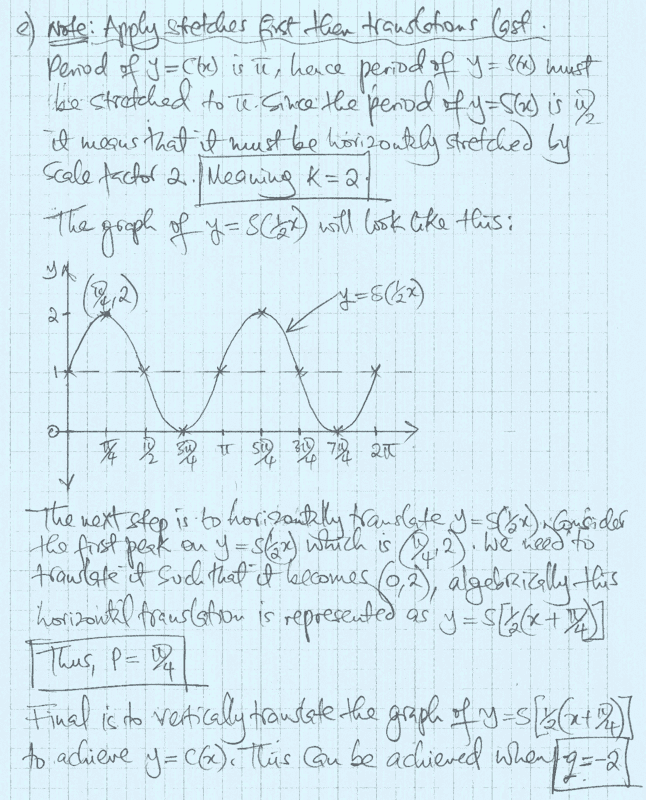 e) Note: Apply stretches first then translations last.
Period of y=C(x) is π, hence period of y = S(x) must
be stretched to π. Since the period of y=S(x) is π/2
it means that it must be horizontally stretched by
Scale factor 2. Meaning K = 2
The graph of y = S(½x) will look like this:
y
(π/4, 2)
y=S(½x)
2
1
0
π/4 π/2 3π/4 π 5π/4 3π/4 7π/4 2π
The next step is to horizontally translate y=S(½x). Consider
the first peak on y=S(½x) which is (π/4, 2). We need to
translate it such that it becomes (0,2), algebraically this
horizontal translation is represented as y=S[½(x+π/4)]
Thus, P = π/4
Final is to vertically translate the graph of y=S[½(x+π/4)]
to achieve y=C(x). This can be achieved when q=-2